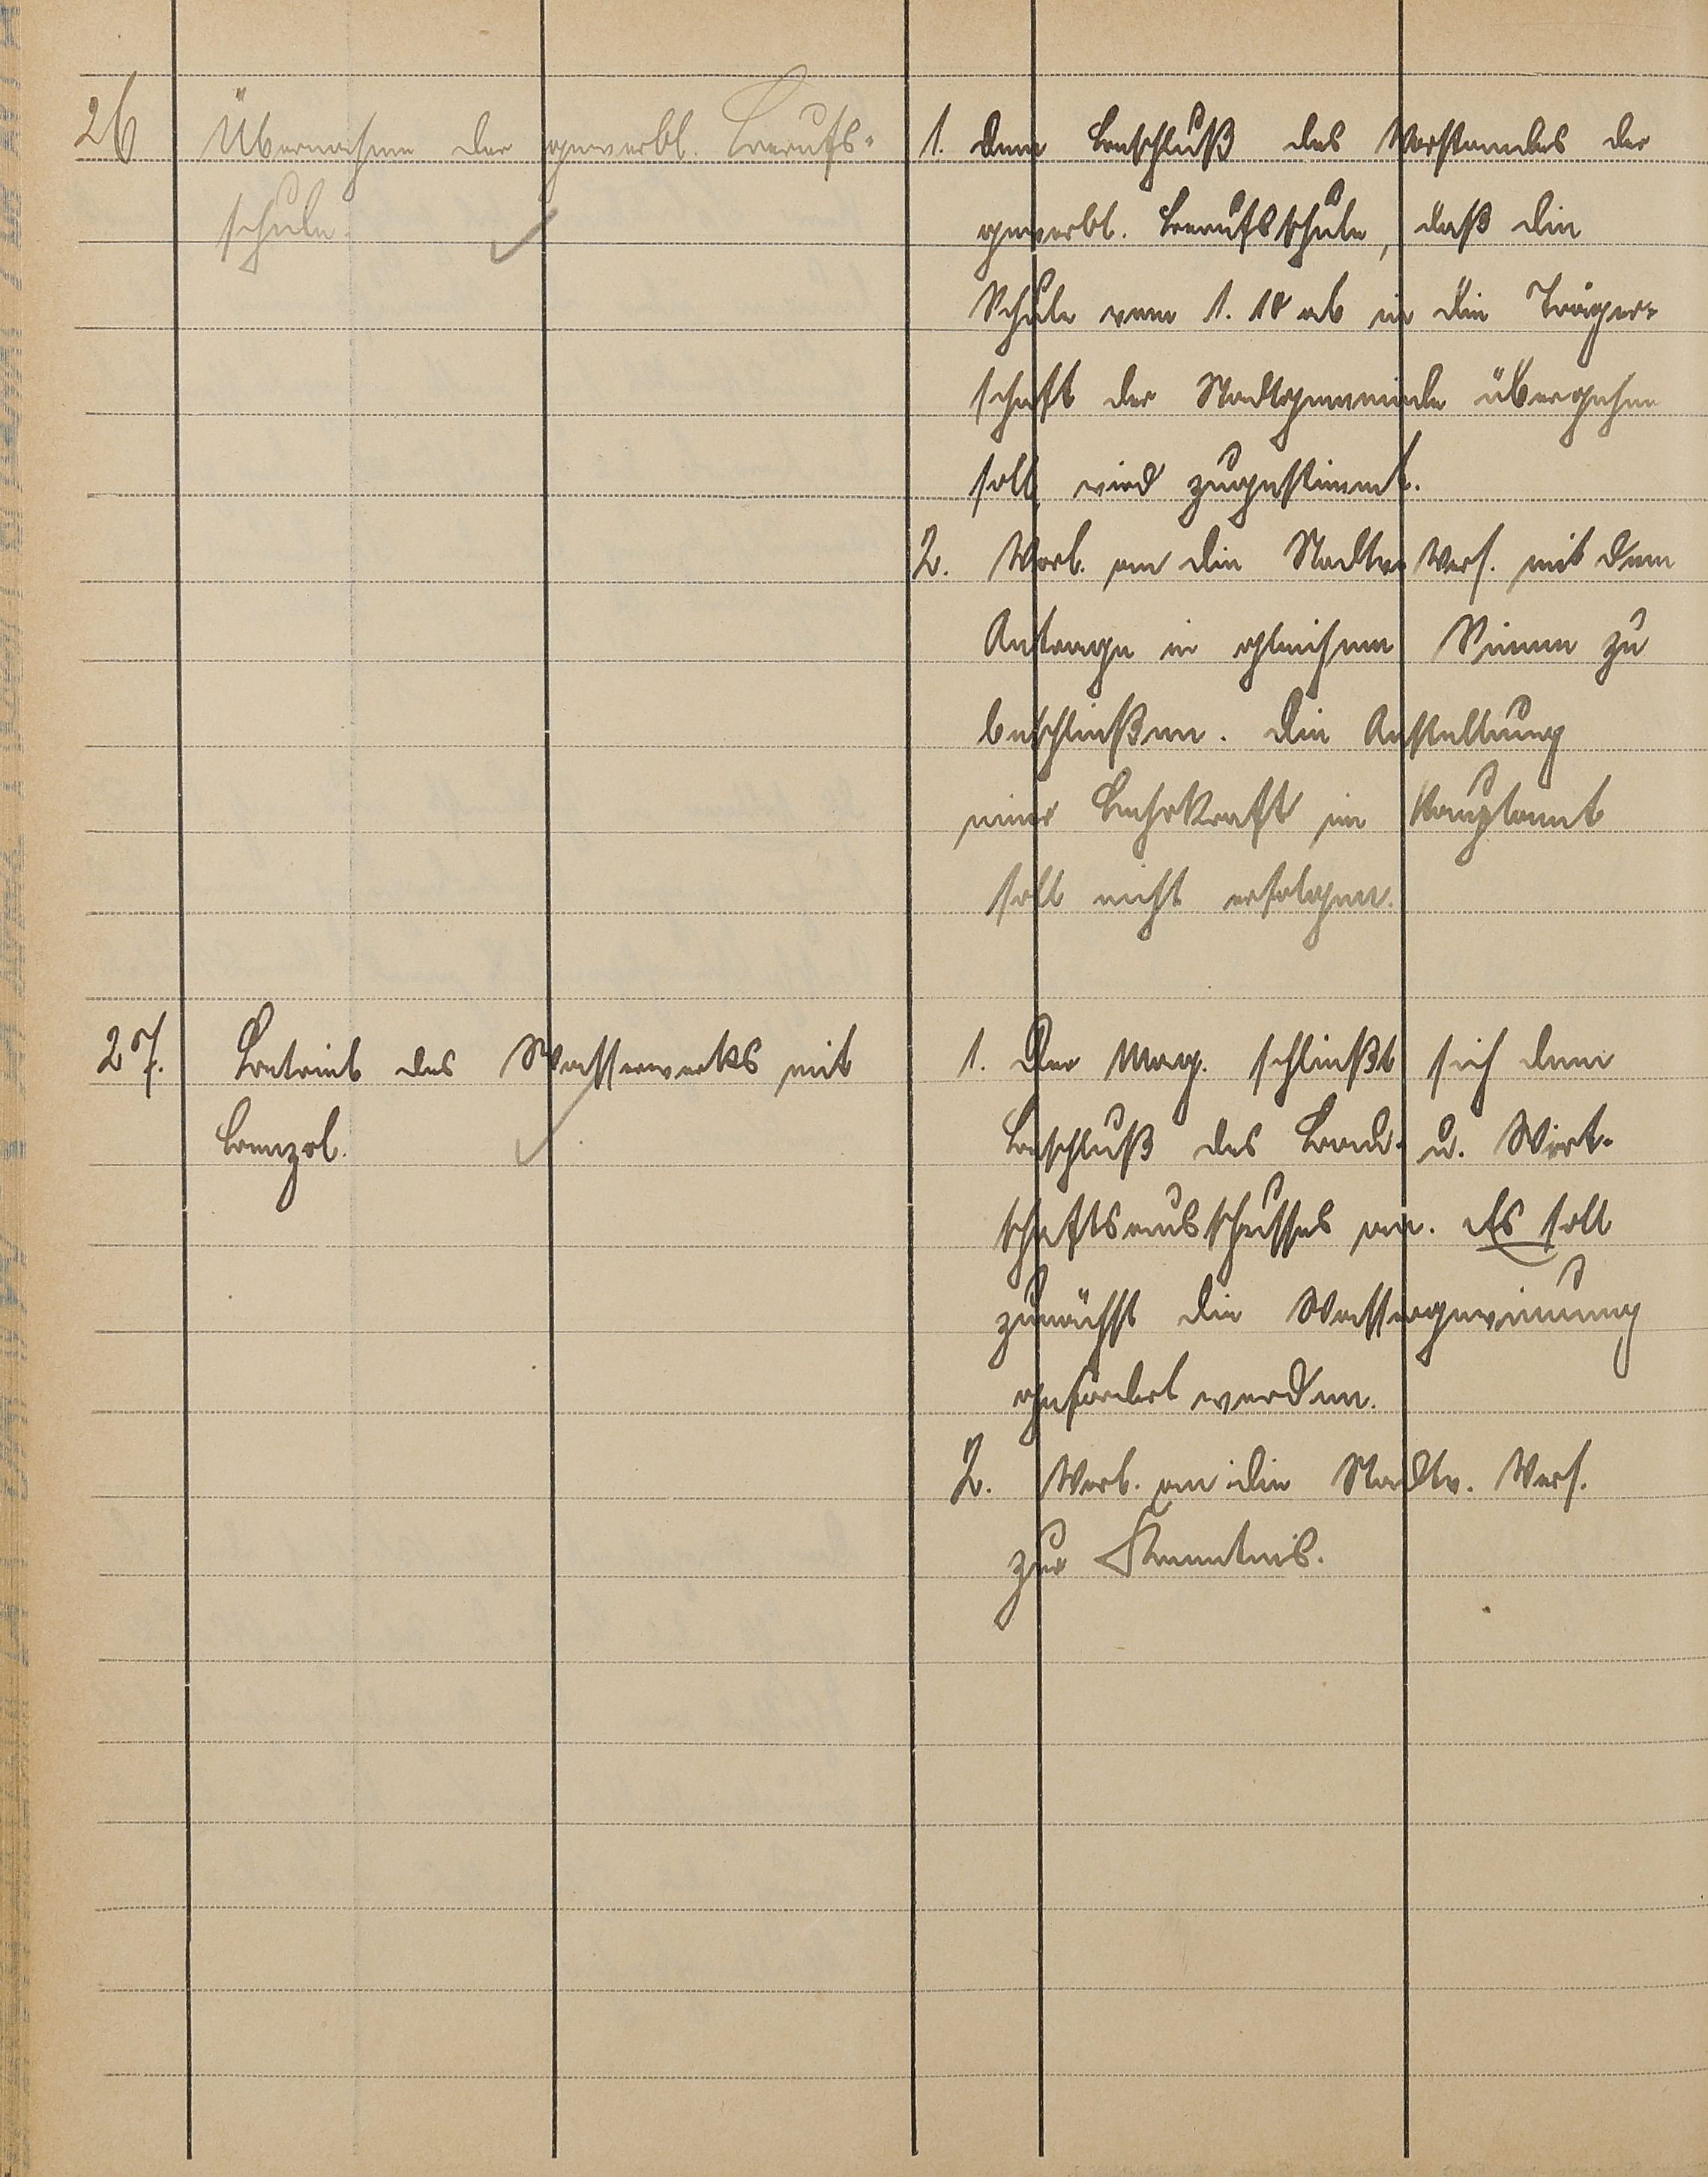 26 Übernahme der gewerbl. Berufs-
schule.
1. Dem Beschluß des Vorstandes der
gewerbl. Berufsschule, daß die
Schule vom 1. 10 ab in die Träger-
schaft der Stadtgemeinde übergehen
soll, wird zugestimmt.
2. Vorl. an die Stadtv. Vers. mit dem
Antrage in gleichem Sinne zu
beschließen. Die Anstellung
einer Lehrkraft im Hauptamt
soll nicht erfolgen.
27. Betrieb des Wasserwerks mit
Benzol.
1. Der Mag. schließt sich dem
Beschluß des Bau- u. Wirt-
schaftsausschusses an. Es soll
zunächst die Wassergewinnung
gefördert werden.
2. Vorl. an die Stadtv. Vers.
zur Kenntnis.